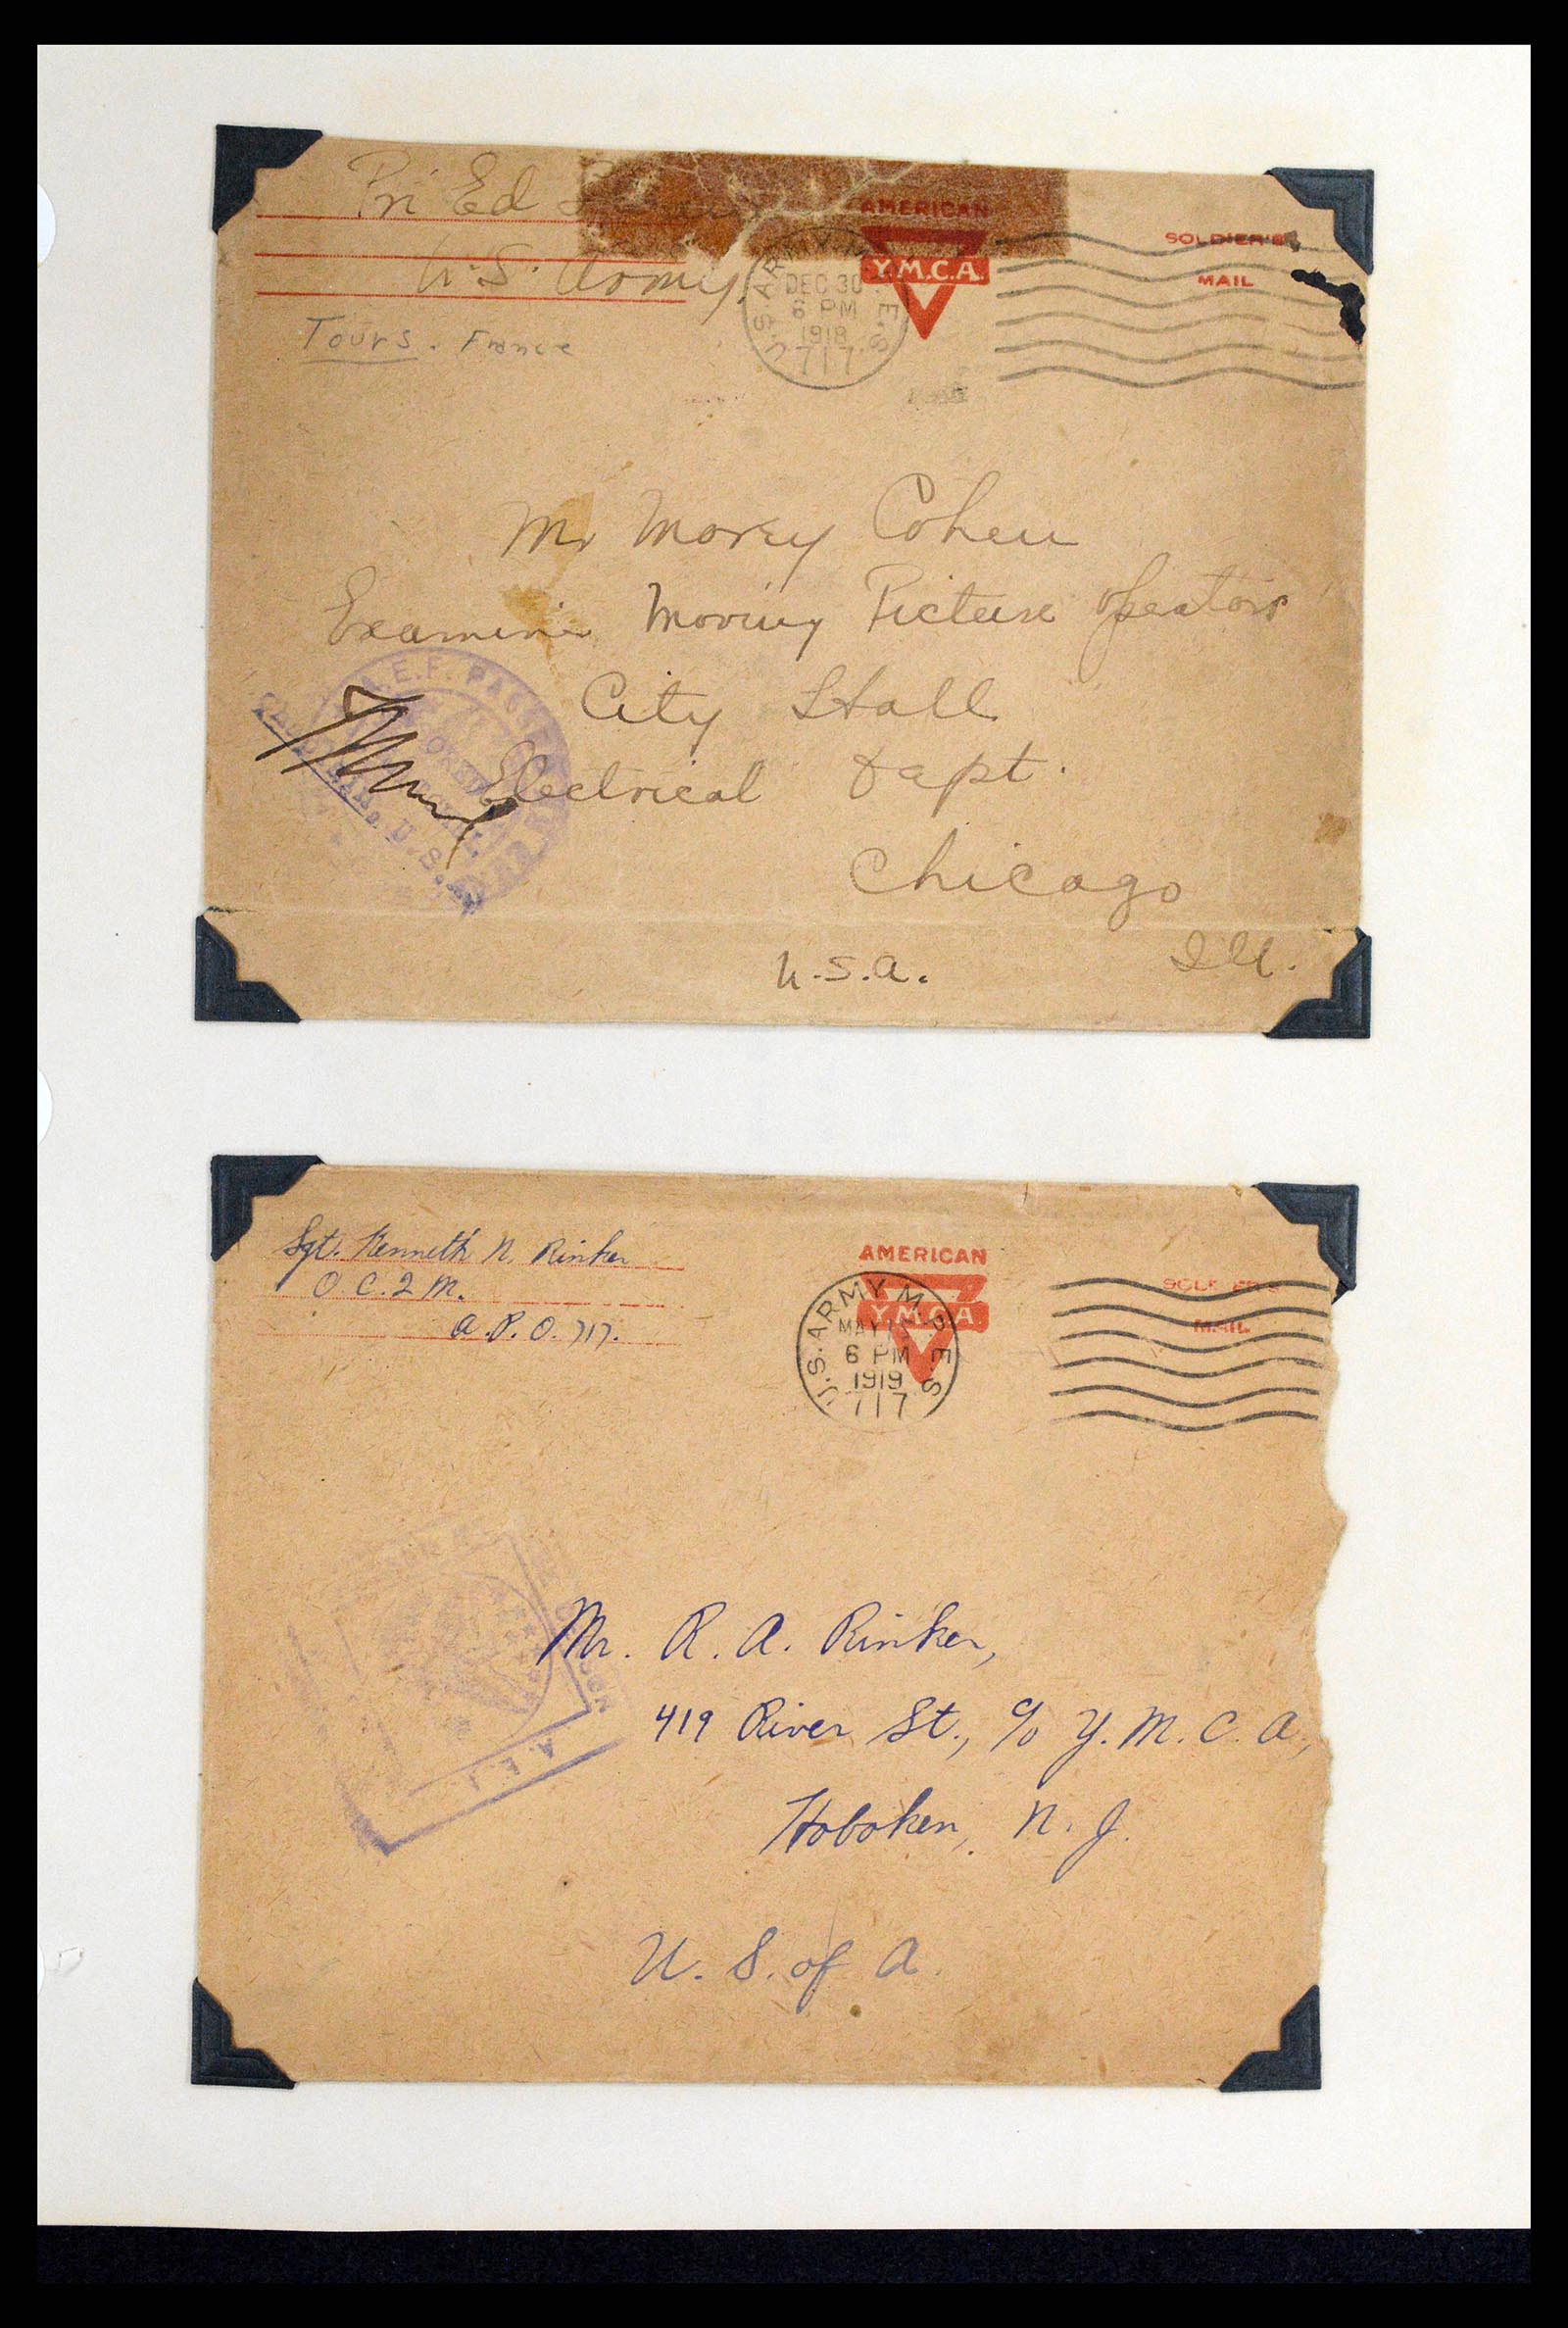 Pri Ed
U.S. Army.
Tours. France
AMERICAN
Y.M.C.A.
SOLDIER'S
MAIL
U.S. ARMY M.P.E.S.
DEC 30
6 PM
1918
717
Mr Morey Cohen
Examiner Moving Picture Operators
City Hall
Electrical Dept.
Chicago
Ill.
U.S.A.
A.E.F. PASSED
U.S.
Sgt. Kenneth N. Rinker
O.C.2 M.
A.P.O. 717.
AMERICAN
Y.M.C.A.
MAIL
U.S. ARMY M.P.E.S.
MAY
6 PM
1919
717
Mr. R. A. Rinker,
419 River St., c/o Y.M.C.A.,
Hoboken, N.J.
U.S. of A.
A.E.F.